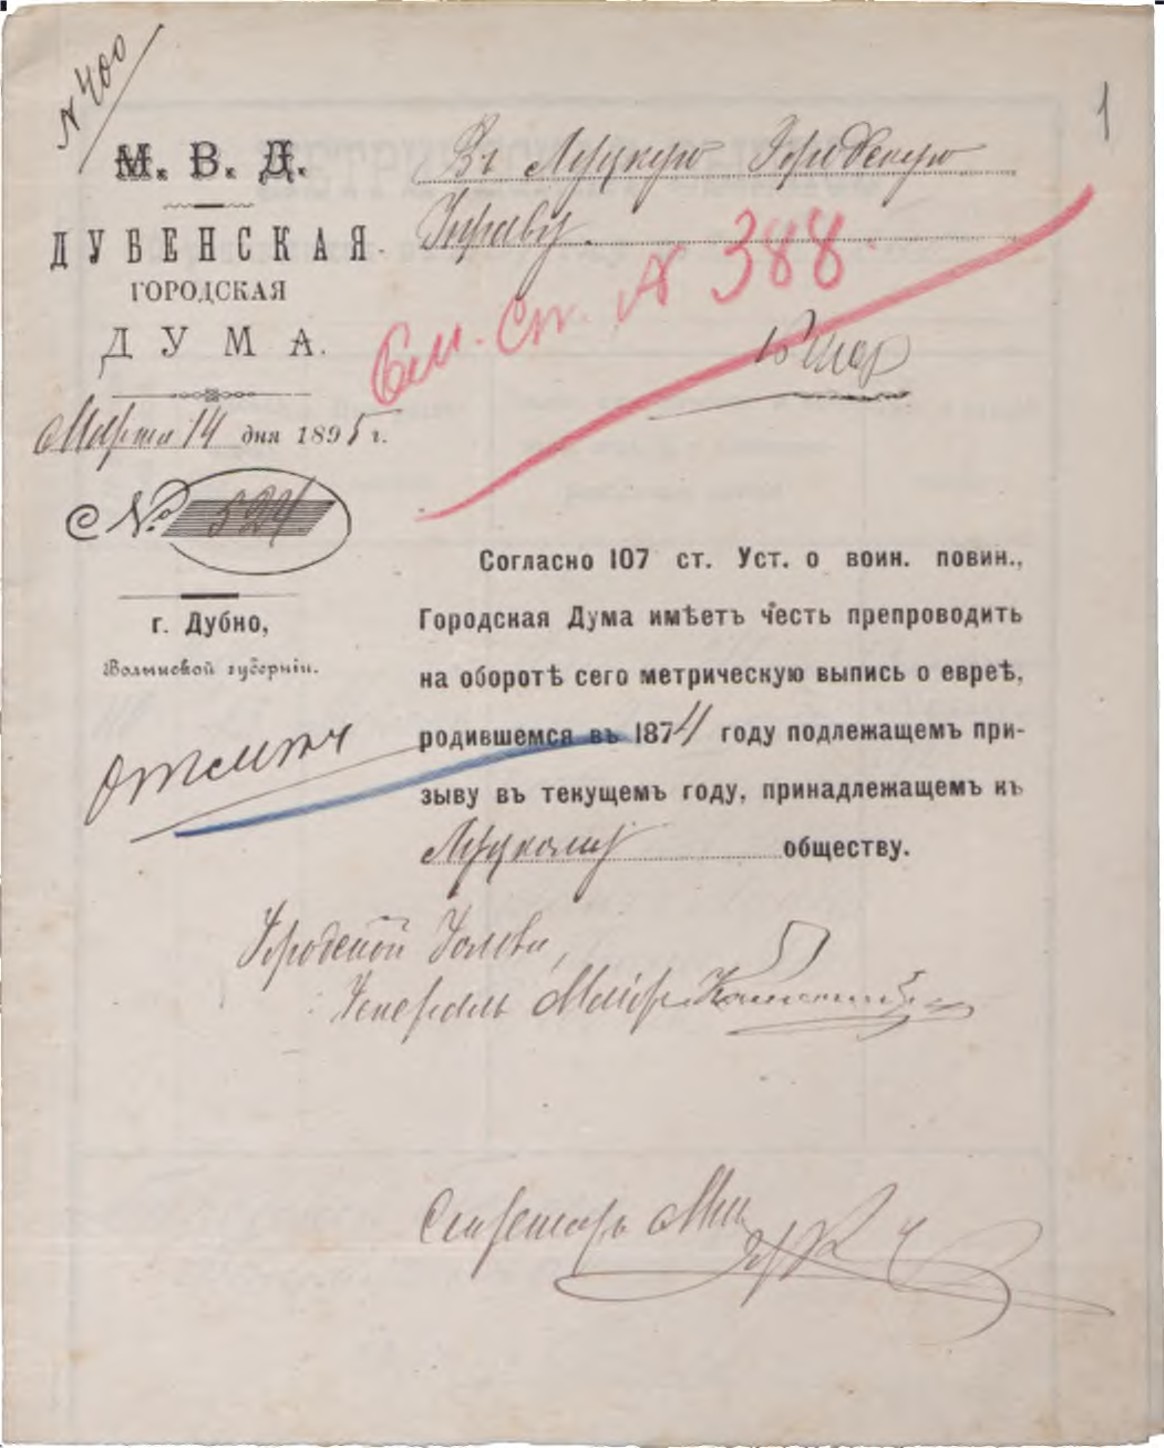 № 400
1
М. В. Д.
ДУБЕНСКАЯ
ГОРОДСКАЯ
ДУМА.
Марта 14 дня 1895 г.
№ 524
г. Дубно,
Волынской губерніи.
Въ Луцкую Городскую
Управу.
См. ст. № 388.
18 мар
Согласно 107 ст. Уст. о воин. повин.,
Городская Дума имѣетъ честь препроводить
на оборотѣ сего метрическую выпись о евреѣ,
родившемся въ 1874 году подлежащемъ при-
зыву въ текущемъ году, принадлежащемъ къ
Луцкому обществу.
Городской Голова,
Генералъ Маіоръ
Секретарь